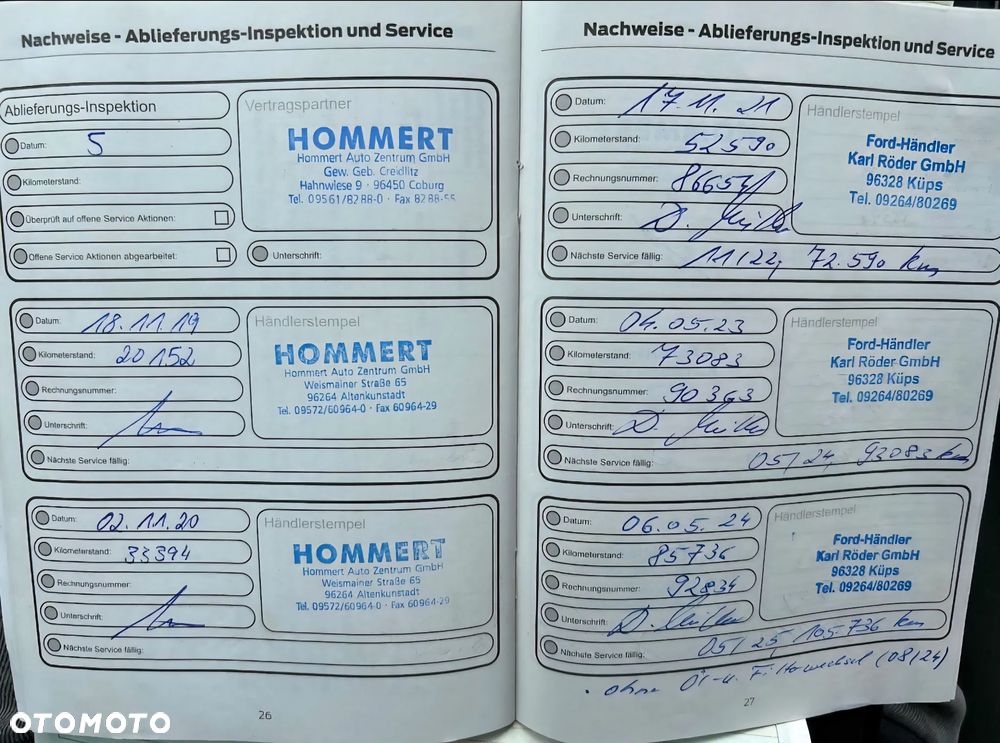 Nachweise - Ablieferungs-Inspektion und Service
Ablieferungs-Inspektion
Datum: 5
Kilometerstand:
Überprüft auf offene Service Aktionen:
Offene Service Aktionen abgearbeitet:
Vertragspartner
HOMMERT
Hommert Auto Zentrum GmbH
Gew. Geb. Creidlitz
Hahnwiese 9 · 96450 Coburg
Tel. 09561/8288-0 · Fax 8288-55
Unterschrift:
Datum: 18.11.19
Kilometerstand: 20152
Rechnungsnummer:
Unterschrift:
Nächste Service fällig:
Händlerstempel
HOMMERT
Hommert Auto Zentrum GmbH
Weismainer Straße 65
96264 Altenkunstadt
Tel. 09572/60964-0 · Fax 60964-29
Datum: 02.11.20
Kilometerstand: 33394
Rechnungsnummer:
Unterschrift:
Nächste Service fällig:
Händlerstempel
HOMMERT
Hommert Auto Zentrum GmbH
Weismainer Straße 65
96264 Altenkunstadt
Tel. 09572/60964-0 · Fax 60964-29
26
Nachweise - Ablieferungs-Inspektion und Service
Datum: 17.11.21
Kilometerstand: 52590
Rechnungsnummer:
Unterschrift: D.
Nächste Service fällig: 11/22, 72.590 km
Händlerstempel
Ford-Händler
Karl Röder GmbH
96328 Küps
Tel. 09264/80269
Datum: 04.05.23
Kilometerstand: 73083
Rechnungsnummer: 90363
Unterschrift: D.
Nächste Service fällig: 05/24, 93083 km
Händlerstempel
Ford-Händler
Karl Röder GmbH
96328 Küps
Tel. 09264/80269
Datum: 06.05.24
Kilometerstand: 85736
Rechnungsnummer: 92834
Unterschrift: D.
Nächste Service fällig: 05/25, 105.736 km
Händlerstempel
Ford-Händler
Karl Röder GmbH
96328 Küps
Tel. 09264/80269
· ohne Öl-u. Filterwechsel (08/24)
27
OTOMOTO